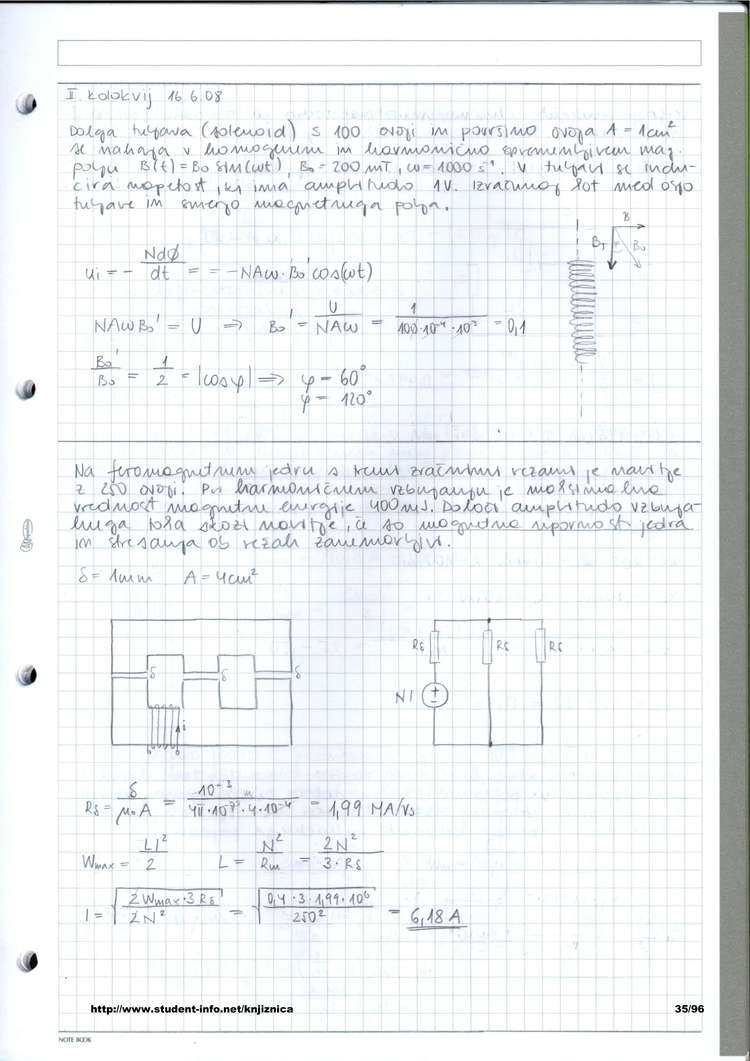 II. kolokvij 16.6.08
Dolga tuljava (solenoid) s 100 ovoji in površino ovoja A = 1cm²
se nahaja v homogenem in harmonično spremenljivem mag.
polju B(t) = B₀ sin(ωt), B₀ = 200 mT, ω = 1000 s⁻¹. V tuljavi se indu-
cira napetost, ki ima amplitudo 1V. Izračunaj kot med osjo
tuljave in smerjo magnetnega polja.
B
B_T φ B₀
ui = - NdΦ/dt = = -NAω·B₀' cos(ωt)
NAωB₀' = U ⇒ B₀' = U/NAω = 1/100·10⁻⁴·10³ = 0,1
B₀'/B₀ = 1/2 = |cosφ| ⇒ φ = 60°
φ = 120°
Na feromagnetnem jedru s tremi zračnimi režami je navitje
z 250 ovoji. Pri harmoničnem vzbujanju je maksimalna
vrednost magnetne energije 400mJ. Določi amplitudo vzbuja-
nega toka skozi navitje, če so magnetna upornost jedra
in stresanja ob režah zanemarljivi.
δ = 1mm A = 4cm²
δ δ δ
i
Rδ Rδ Rδ
NI
Rδ = δ/μ₀A = 10⁻³ m/4π·10⁻⁷·4·10⁻⁴ = 1,99 MA/Vs
Wmax = LI²/2 L = N²/Rm = 2N²/3·Rδ
I = √(2Wmax·3Rδ/2N²) = √(0,4·3·1,99·10⁶/250²) = 6,18 A
http://www.student-info.net/knjiznica 35/96
NOTE BOOK